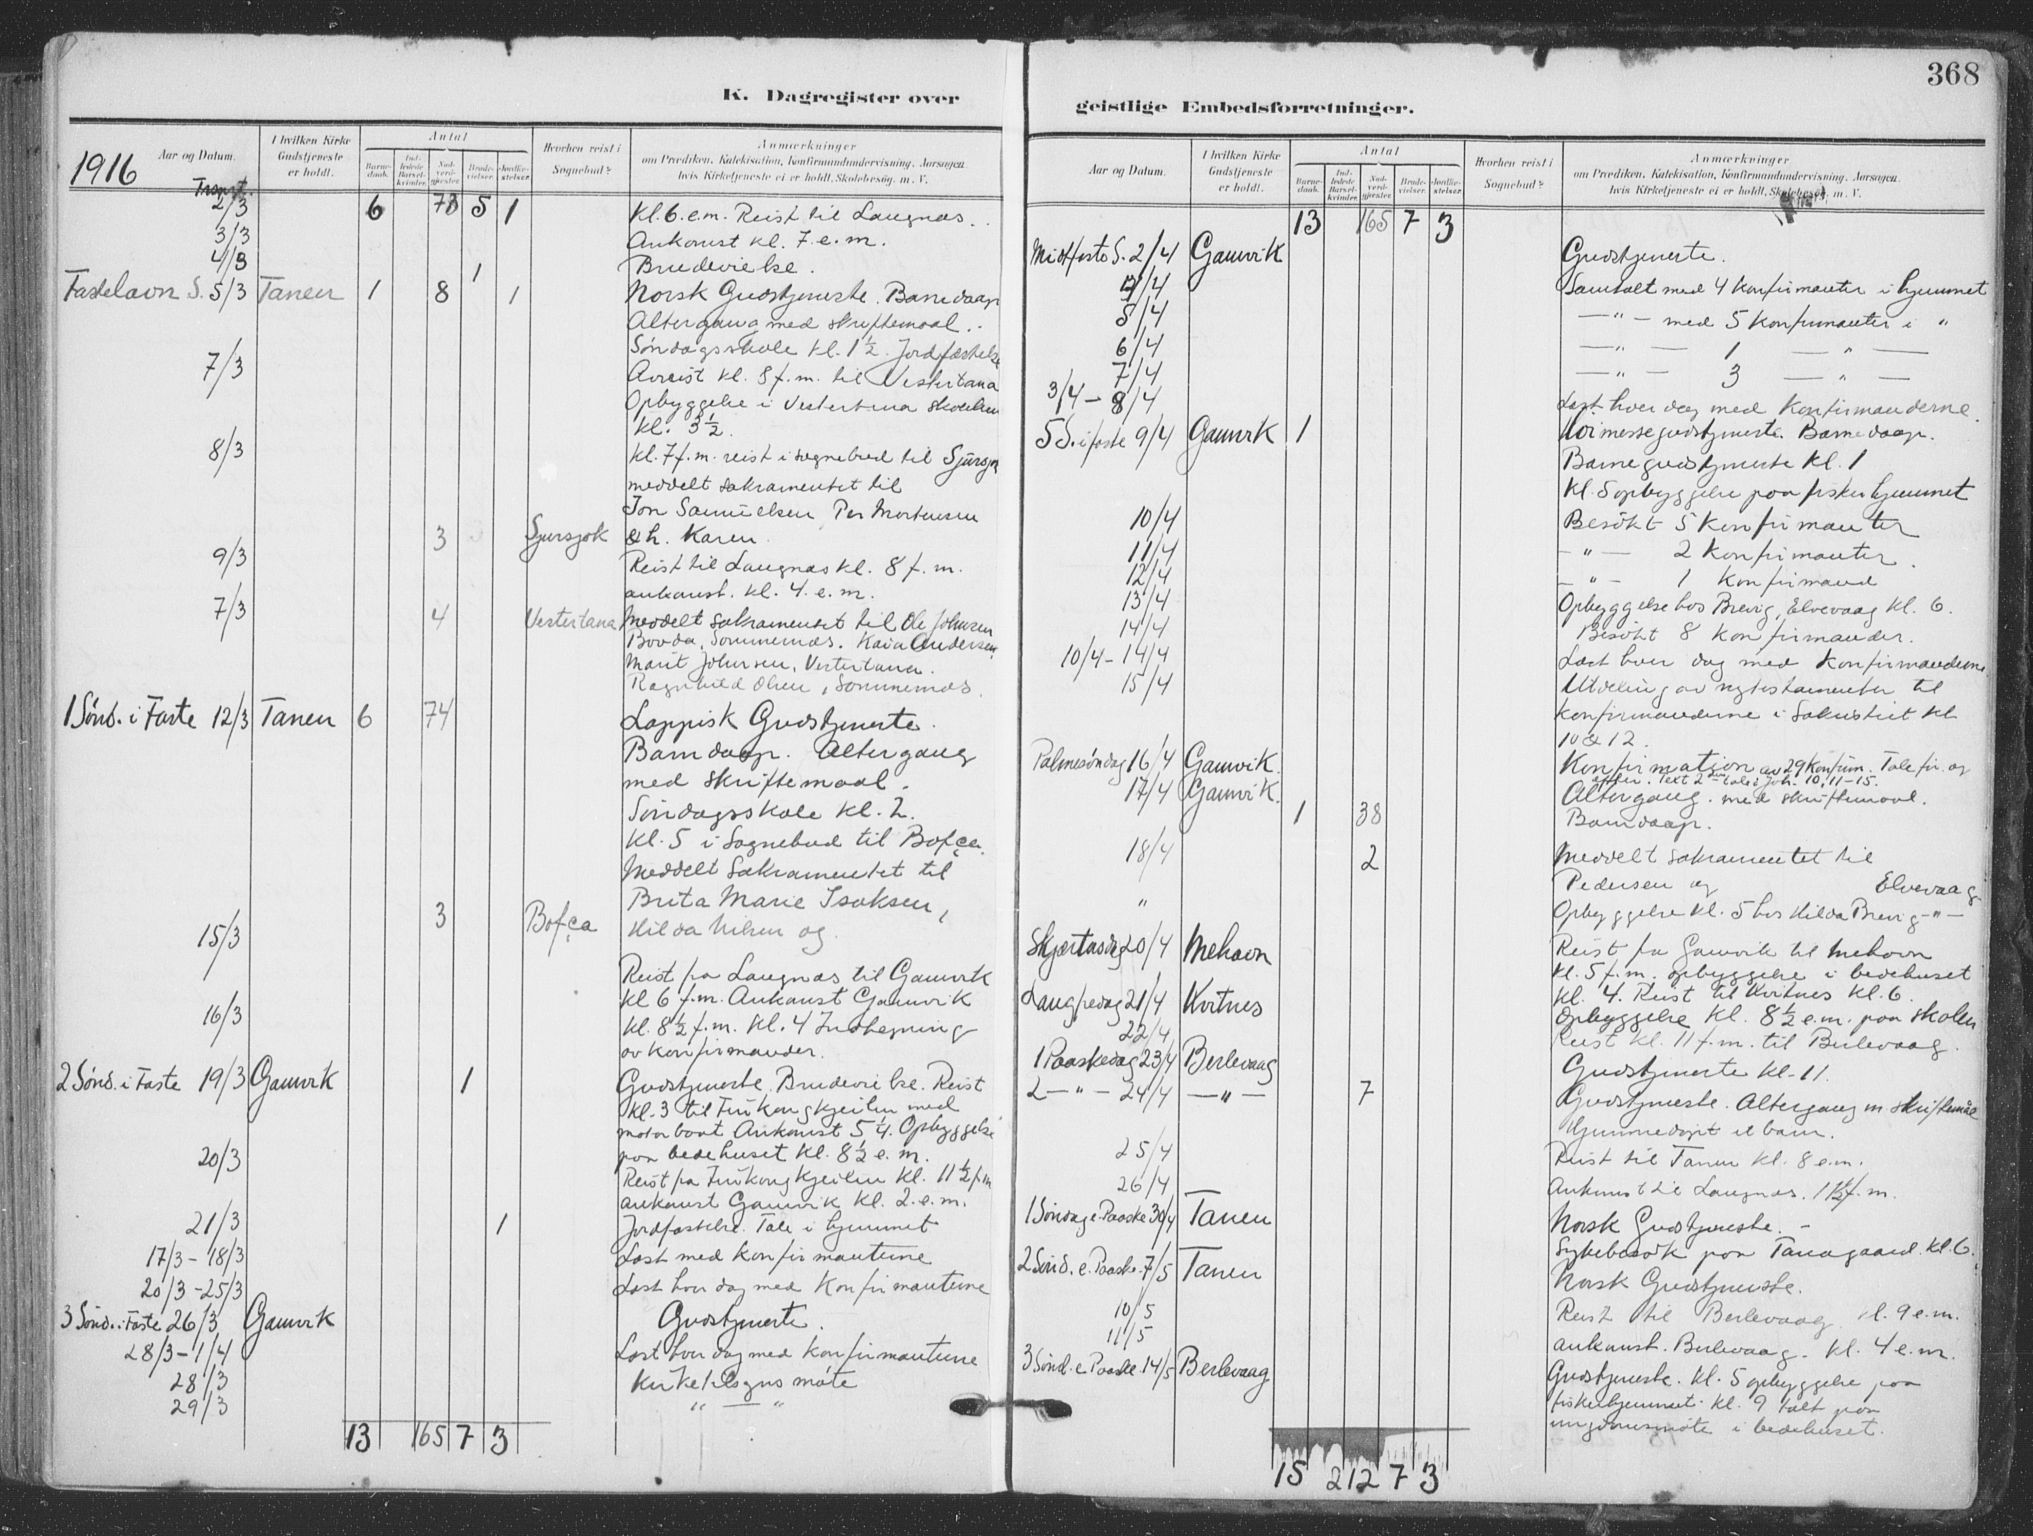 368
K. Dagregister over
1916
Aar og Datum.
I hvilken Kirke Gudstjeneste er holdt.
Antal
Barne-daab. Ind-ledede Barsel-kvinder. Nad-verd-gjester. Brude-vielser. Jordfæ-stelser.
Hvorhen reist i Sognebud?
Anmærkninger
om Prædiken, Katekisation, Konfirmandundervisning. Aarsagen,
hvis Kirketjeneste ei er holdt, Skolebesøg. m. V.
Transt.
2/3 6 78 5 1 Kl. 6. e.m. Reist til Langnæs.
3/3 Ankomst kl. 7. e.m.
4/3 1 Brudevielse.
Fastelavn S. 5/3 Tanen 1 8 1 Norsk Gudstjeneste. Barnedaap
Altergang med skriftemaal.
Søndagsskole kl. 1½. Jordfæstelse
7/3 Avreist kl. 8 f.m. til Vestertana
Opbyggelse i Vestertana skolehus
kl. 3½.
8/3 Kl. 7 f.m. reist i sognebud til Sjursjok
meddelt sakramentet til
Jon Samuelsen, Per Mortensen
3 Sjursjok & h. Karen.
9/3 Reist til Langnæs kl. 8 f.m.
ankomst. kl. 4. e.m.
7/3 4 Vestertana Meddelt sakramentet til Ole Johnsen
Sommernæs. Kaia Andersen,
Marit Johnsen, Vestertana.
Ragnhild Olsen, Sommernæs.
1 Sønd. i Faste 12/3 Tanen 6 74 Lappisk Gudstjeneste.
Barndaap. Altergang
med skriftemaal.
Søndagsskole kl. 2.
Kl. 5 i Sognebud til Bofça.
Meddelt Sakramentet til
3 Bofça Brita Marie Isaksen,
15/3 Hilda Nilsen og
Reist fra Langnæs til Gamvik
Kl 6 f.m. Ankomst Gamvik
16/3 Kl. 8½ f.m. Kl. 4 Indtegning
av konfirmander.
2 Sønd. i Faste 19/3 Gamvik 1 Gudstjeneste. Brudevielse. Reist
kl. 3 til Finkongkjeilen med
motorbaat Ankomst 5¼. Opbyggelse
paa bedehuset kl. 8½ e.m.
20/3 Reist fra Finkongkjeilen kl. 11½ f.m
ankomst Gamvik kl. 2. e.m.
21/3 1 Jordfæstelse. Tale i hjemmet
17/3 – 18/3 Læst med konfirmanterne
20/3 – 25/3 Læst hver dag med konfirmanterne
3 Sønd. i Faste 26/3 Gamvik Gudstjeneste.
28/3 – 1/4 Læst hver dag med konfirmanterne
28/3 Kirketilsynsmøte
29/3 " — "
13 165 7 3
geistlige Embedsforretninger.
Aar og Datum.
I hvilken Kirke Gudstjeneste er holdt.
Antal
Barne-daab. Ind-ledede Barsel-kvinder. Nad-verd-gjester. Brude-vielser. Jordfæ-stelser.
Hvorhen reist i Sognebud?
Anmærkninger
om Prædiken, Katekisation, Konfirmandundervisning. Aarsagen,
hvis Kirketjeneste ei er holdt, Skolebesøg. m. V.
13 165 7 3
Midfaste S. 2/4 Gamvik Gudstjeneste.
4/4 Samtalt med 4 Konfirmanter i hjemmet
5/4 — " — med 5 Konfirmanter i "
6/4 — " — 1 — " —
7/4 — " — 3 — " —
3/4 – 8/4 Læst hver dag med Konfirmanderne.
5 S. i faste 9/4 Gamvik 1 Høimessegudstjeneste. Barnedaap.
Barnegudstjeneste Kl. 1
Kl. 5 opbyggelse paa fiskerhjemmet
10/4 Besøkt 5 Konfirmanter
11/4 — " — 2 Konfirmanter.
12/4 — " — 1 Konfirmand
13/4 Opbyggelse hos Brevig, Elvevaag kl. 6.
14/4 Besøkt 8 konfirmander.
10/4 – 14/4 Læst hver dag med Konfirmanderne
15/4 Utdeling av nytestamenter til
konfirmanderne i Sakristiet kl
10 & 12.
Palmesøndag 16/4 Gamvik. Konfirmation av 29 konfirm. Tale før og
efter. Text 2den tale: Joh. 10, 11–15.
17/4 Gamvik. Altergang. med skriftemaal.
1 38 Barndaap.
18/4 2 Meddelt sakramentet til
Pedersen og Elvevaag
" Opbyggelse kl. 5 hos Hilda Brevig — " —
Skjærtorsdag 20/4 Mehavn Reist fra Gamvik til Mehavn
kl. 5 f.m. opbyggelse i bedehuset
Langfredag 21/4 Kvitnes kl. 4. Reist til Kvitnes kl. 6.
opbyggelse kl. 8½ e.m. paa skolen
22/4 Reist kl. 11 f.m. til Berlevaag.
1 Paaskedag 23/4 Berlevaag Gudstjeneste kl. 11.
2 — " — 24/4 — " — 7 Gudstjeneste. Altergang m skriftemål
hjemmedøpt et barn.
25/4 Reist til Tanen kl. 8 e.m.
26/4 Ankomst til Langnæs. 1½ f.m.
1 Søndag e. Paaske 30/4 Tanen Norsk Gudstjeneste. –
Sykebesøk paa Tanagaard. Kl. 6.
2 Sønd. e. Paaske. 7/5 Tanen Norsk Gudstjeneste.
10/5 Reist til Berlevaag kl. 9 e.m.
11/5 ankomst. Berlevaag. kl. 4 e.m.
3 Sønd. e Paaske 14/5 Berlevaag Gudstjeneste. kl. 5 opbyggelse paa
fiskerhjemmet. kl. 9 talt paa
ungdomsmøte i bedehuset.
15 212 7 3